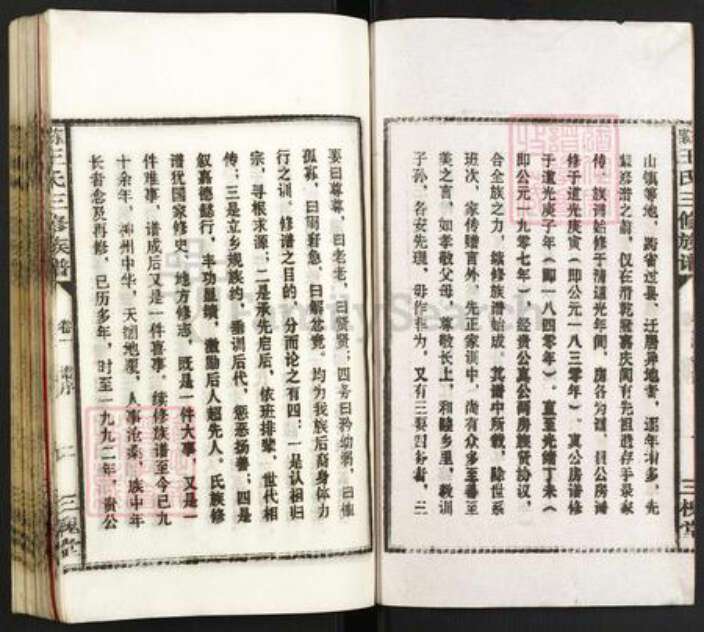 山镇等地，跨省过县、迁居异地者，逐年增多，先
辈修谱之前，仅在清乾隆嘉庆间有先祖遗存手录家
传，族谱始修于清道光年间，房各为谱，贵公房谱
修于道光庚寅（即公元一八三０年），真公房谱修
于道光庚子年（即一八四０年）。直至光绪丁未（
即公元一九０七年）经贵公真公两房族贤协议，
合全族之力，续修族谱始成，其谱中所载，除世系
班次，家传赠言外，先正家训中，尚有众多至善至
美之言，如孝敬父母，尊敬长上，和睦乡里，教训
子孙，各安先理，毋作非为，又有三要四务者，三
王氏三修族谱
三槐堂
要曰尊尊，曰老老，曰贤贤；四务曰矜幼弱，曰恤
孤寡，曰周窘急，曰解忿竞，均为我族后裔身体力
行之训。修谱之目的，分而论之有四：一是认祖归
宗，寻根求源；二是承先启后，依班排辈，世代相
传；三是立乡规族约，垂训后代，惩恶扬善；四是
叙嘉德懿行，丰功显绩，激励后人超先人。氏族修
谱犹国家修史，地方修志，既是一件大事，又是一
件难事，谱成后又是一件喜事，续修族谱至今已九
十余年，神州中华，天翻地覆，人事沧桑，族中年
长者念及再修，已历多年，时至一九九二年，贵公
王氏三修族谱
卷一
谱序
三槐堂
FamilySearch